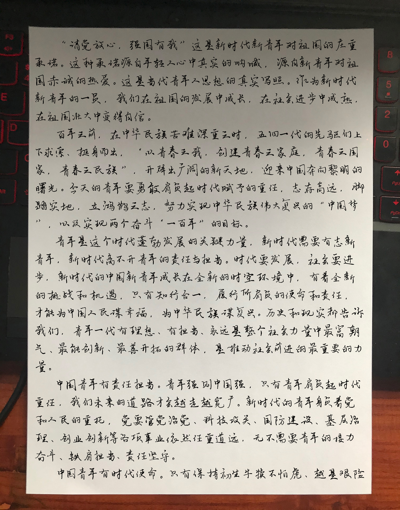 "请党放心，强国有我"这是新时代新青年对祖国的庄重
承诺。这种承诺源自年轻人心中真实的呐喊，源自新青年对祖
国赤诚的热爱。这是当代青年人思想的真实写照。作为新时代
新青年的一员，我们在祖国的发展中成长，在社会进步中成熟，
在祖国壮大中变得自信。
百年之前，在中华民族苦难深重之时，五四一代的先驱们上
下求索，挺身而出，"以青春之我，创建青春之家庭，青春之国
家，青春之民族"，开辟出广阔的新天地，迎来中国奔向黎明的
曙光。今天的青年要勇敢肩负起时代赋予的重任，志存高远，脚
踏实地，立鸿鹄之志，努力实现中华民族伟大复兴的"中国梦
"，以及实现两个奋斗"一百年"的目标。
青年是这个时代蓬勃发展的关键力量，新时代需要有志新
青年，新时代离不开青年的责任与担当。时代要发展，社会要进
步，新时代的中国新青年成长在全新的时空环境中，有着全新
的挑战和机遇，只有知行合一，履行所肩负的使命和责任，
才能为中国人民谋幸福，为中华民族谋复兴。历史和现实都告诉
我们，青年一代有理想、有担当，永远是整个社会力量中最富朝
气、最能创新、最善开拓的群体，是推动社会前进的最重要的力
量。
中国青年有责任担当。青年强则中国强，只有青年肩负起时代
重任，我们未来的道路才会越走越宽广。新时代的青年身负着党
和人民的重托，党要管党治党、科技攻关、国防建设、基层治
理、创业创新等各项事业依然任重道远，无不需要青年的接力
奋斗、铁肩担当、责任坚守。
中国青年有时代使命。只有保持初生牛犊不怕虎、越是艰险